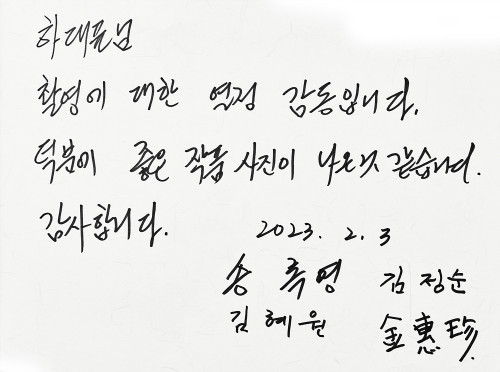 하대표님
촬영에 대한 열정 감동입니다.
덕분에 좋은 작품 사진이 나온거 같습니다.
감사합니다.
2023. 2. 3
송륙영 김정순
김혜원 金惠珍